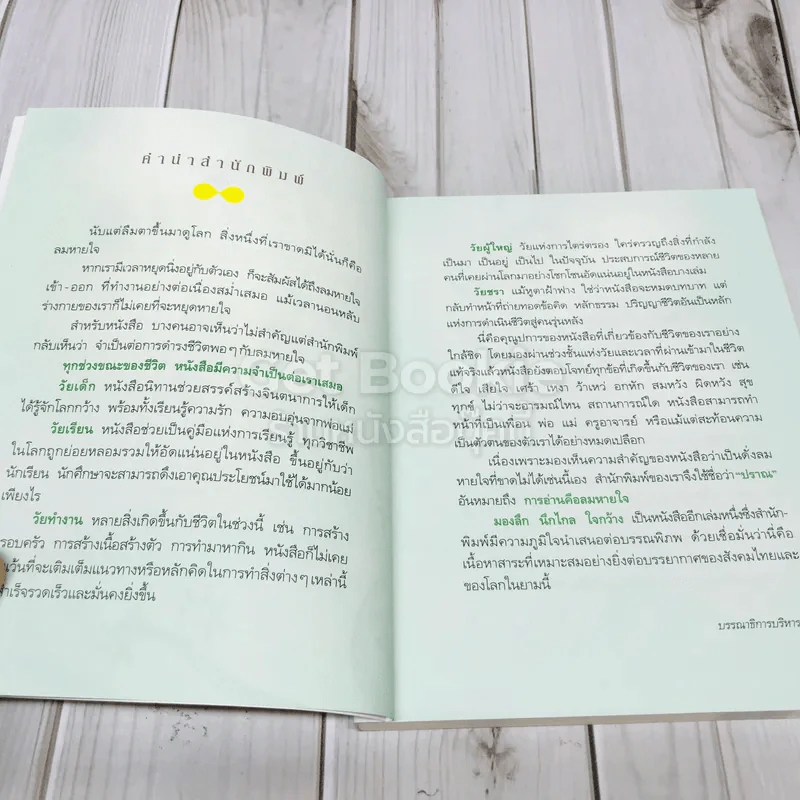 คำนำสำนักพิมพ์
นับแต่ลืมตาขึ้นมาดูโลก สิ่งหนึ่งที่เราขาดมิได้นั่นก็คือ
ลมหายใจ
หากเรามีเวลาหยุดนิ่งอยู่กับตัวเอง ก็จะสัมผัสได้ถึงลมหายใจ
เข้า-ออก ที่ทำงานอย่างต่อเนื่องสม่ำเสมอ แม้เวลานอนหลับ
ร่างกายของเราก็ไม่เคยที่จะหยุดหายใจ
สำหรับหนังสือ บางคนอาจเห็นว่าไม่สำคัญแต่สำนักพิมพ์
กลับเห็นว่า จำเป็นต่อการดำรงชีวิตพอๆ กับลมหายใจ
ทุกช่วงขณะของชีวิต หนังสือมีความจำเป็นต่อเราเสมอ
วัยเด็ก หนังสือนิทานช่วยสรรค์สร้างจินตนาการให้เด็ก
ได้รู้จักโลกกว้าง พร้อมทั้งเรียนรู้ความรัก ความอบอุ่นจากพ่อแม่
วัยเรียน หนังสือช่วยเป็นคู่มือแห่งการเรียนรู้ ทุกวิชาชีพ
ในโลกถูกย่อยหลอมรวมให้อัดแน่นอยู่ในหนังสือ ขึ้นอยู่กับว่า
นักเรียน นักศึกษาจะสามารถดึงเอาคุณประโยชน์มาใช้ได้มากน้อย
เพียงไร
วัยทำงาน หลายสิ่งเกิดขึ้นกับชีวิตในช่วงนี้ เช่น การสร้าง
รอบครัว การสร้างเนื้อสร้างตัว การทำมาหากิน หนังสือก็ไม่เคย
เว้นที่จะเติมเต็มแนวทางหรือหลักคิดในการทำสิ่งต่างๆ เหล่านี้
สำเร็จรวดเร็วและมั่นคงยิ่งขึ้น
วัยผู้ใหญ่ วัยแห่งการไตร่ตรอง ใคร่ครวญถึงสิ่งที่กำลัง
เป็นมา เป็นอยู่ เป็นไป ในปัจจุบัน ประสบการณ์ชีวิตของหลาย
คนที่เคยผ่านโลกมาอย่างโชกโชนอัดแน่นอยู่ในหนังสือบางเล่ม
วัยชรา แม้หูตาฝ้าฟาง ใช่ว่าหนังสือจะหมดบทบาท แต่
กลับทำหน้าที่ถ่ายทอดข้อคิด หลักธรรม ปริญญาชีวิตอันเป็นหลัก
แห่งการดำเนินชีวิตสู่คนรุ่นหลัง
นี่คือคุณูปการของหนังสือที่เกี่ยวข้องกับชีวิตของเราอย่าง
ใกล้ชิด โดยมองผ่านช่วงชั้นแห่งวัยและเวลาที่ผ่านเข้ามาในชีวิต
แท้จริงแล้วหนังสือยังตอบโจทย์ทุกข้อที่เกิดขึ้นกับชีวิตของเรา เช่น
ดีใจ เสียใจ เศร้า เหงา ว้าเหว่ อกหัก สมหวัง ผิดหวัง สุข
ทุกข์ ไม่ว่าจะอารมณ์ไหน สถานการณ์ใด หนังสือสามารถทำ
หน้าที่เป็นเพื่อน พ่อ แม่ ครูอาจารย์ หรือแม้แต่สะท้อนความ
เป็นตัวตนของตัวเราได้อย่างหมดเปลือก
เนื่องเพราะมองเห็นความสำคัญของหนังสือว่าเป็นดั่งลม
หายใจที่ขาดไม่ได้เช่นนี้เอง สำนักพิมพ์ของเราจึงใช้ชื่อว่า "ปราณ"
อันหมายถึง การอ่านคือลมหายใจ
มองลึก นึกไกล ใจกว้าง เป็นหนังสืออีกเล่มหนึ่งซึ่งสำนัก-
พิมพ์มีความภูมิใจนำเสนอต่อบรรณพิภพ ด้วยเชื่อมั่นว่านี่คือ
เนื้อหาสาระที่เหมาะสมอย่างยิ่งต่อบรรยากาศของสังคมไทยและ
ของโลกในยามนี้
บรรณาธิการบริหาร